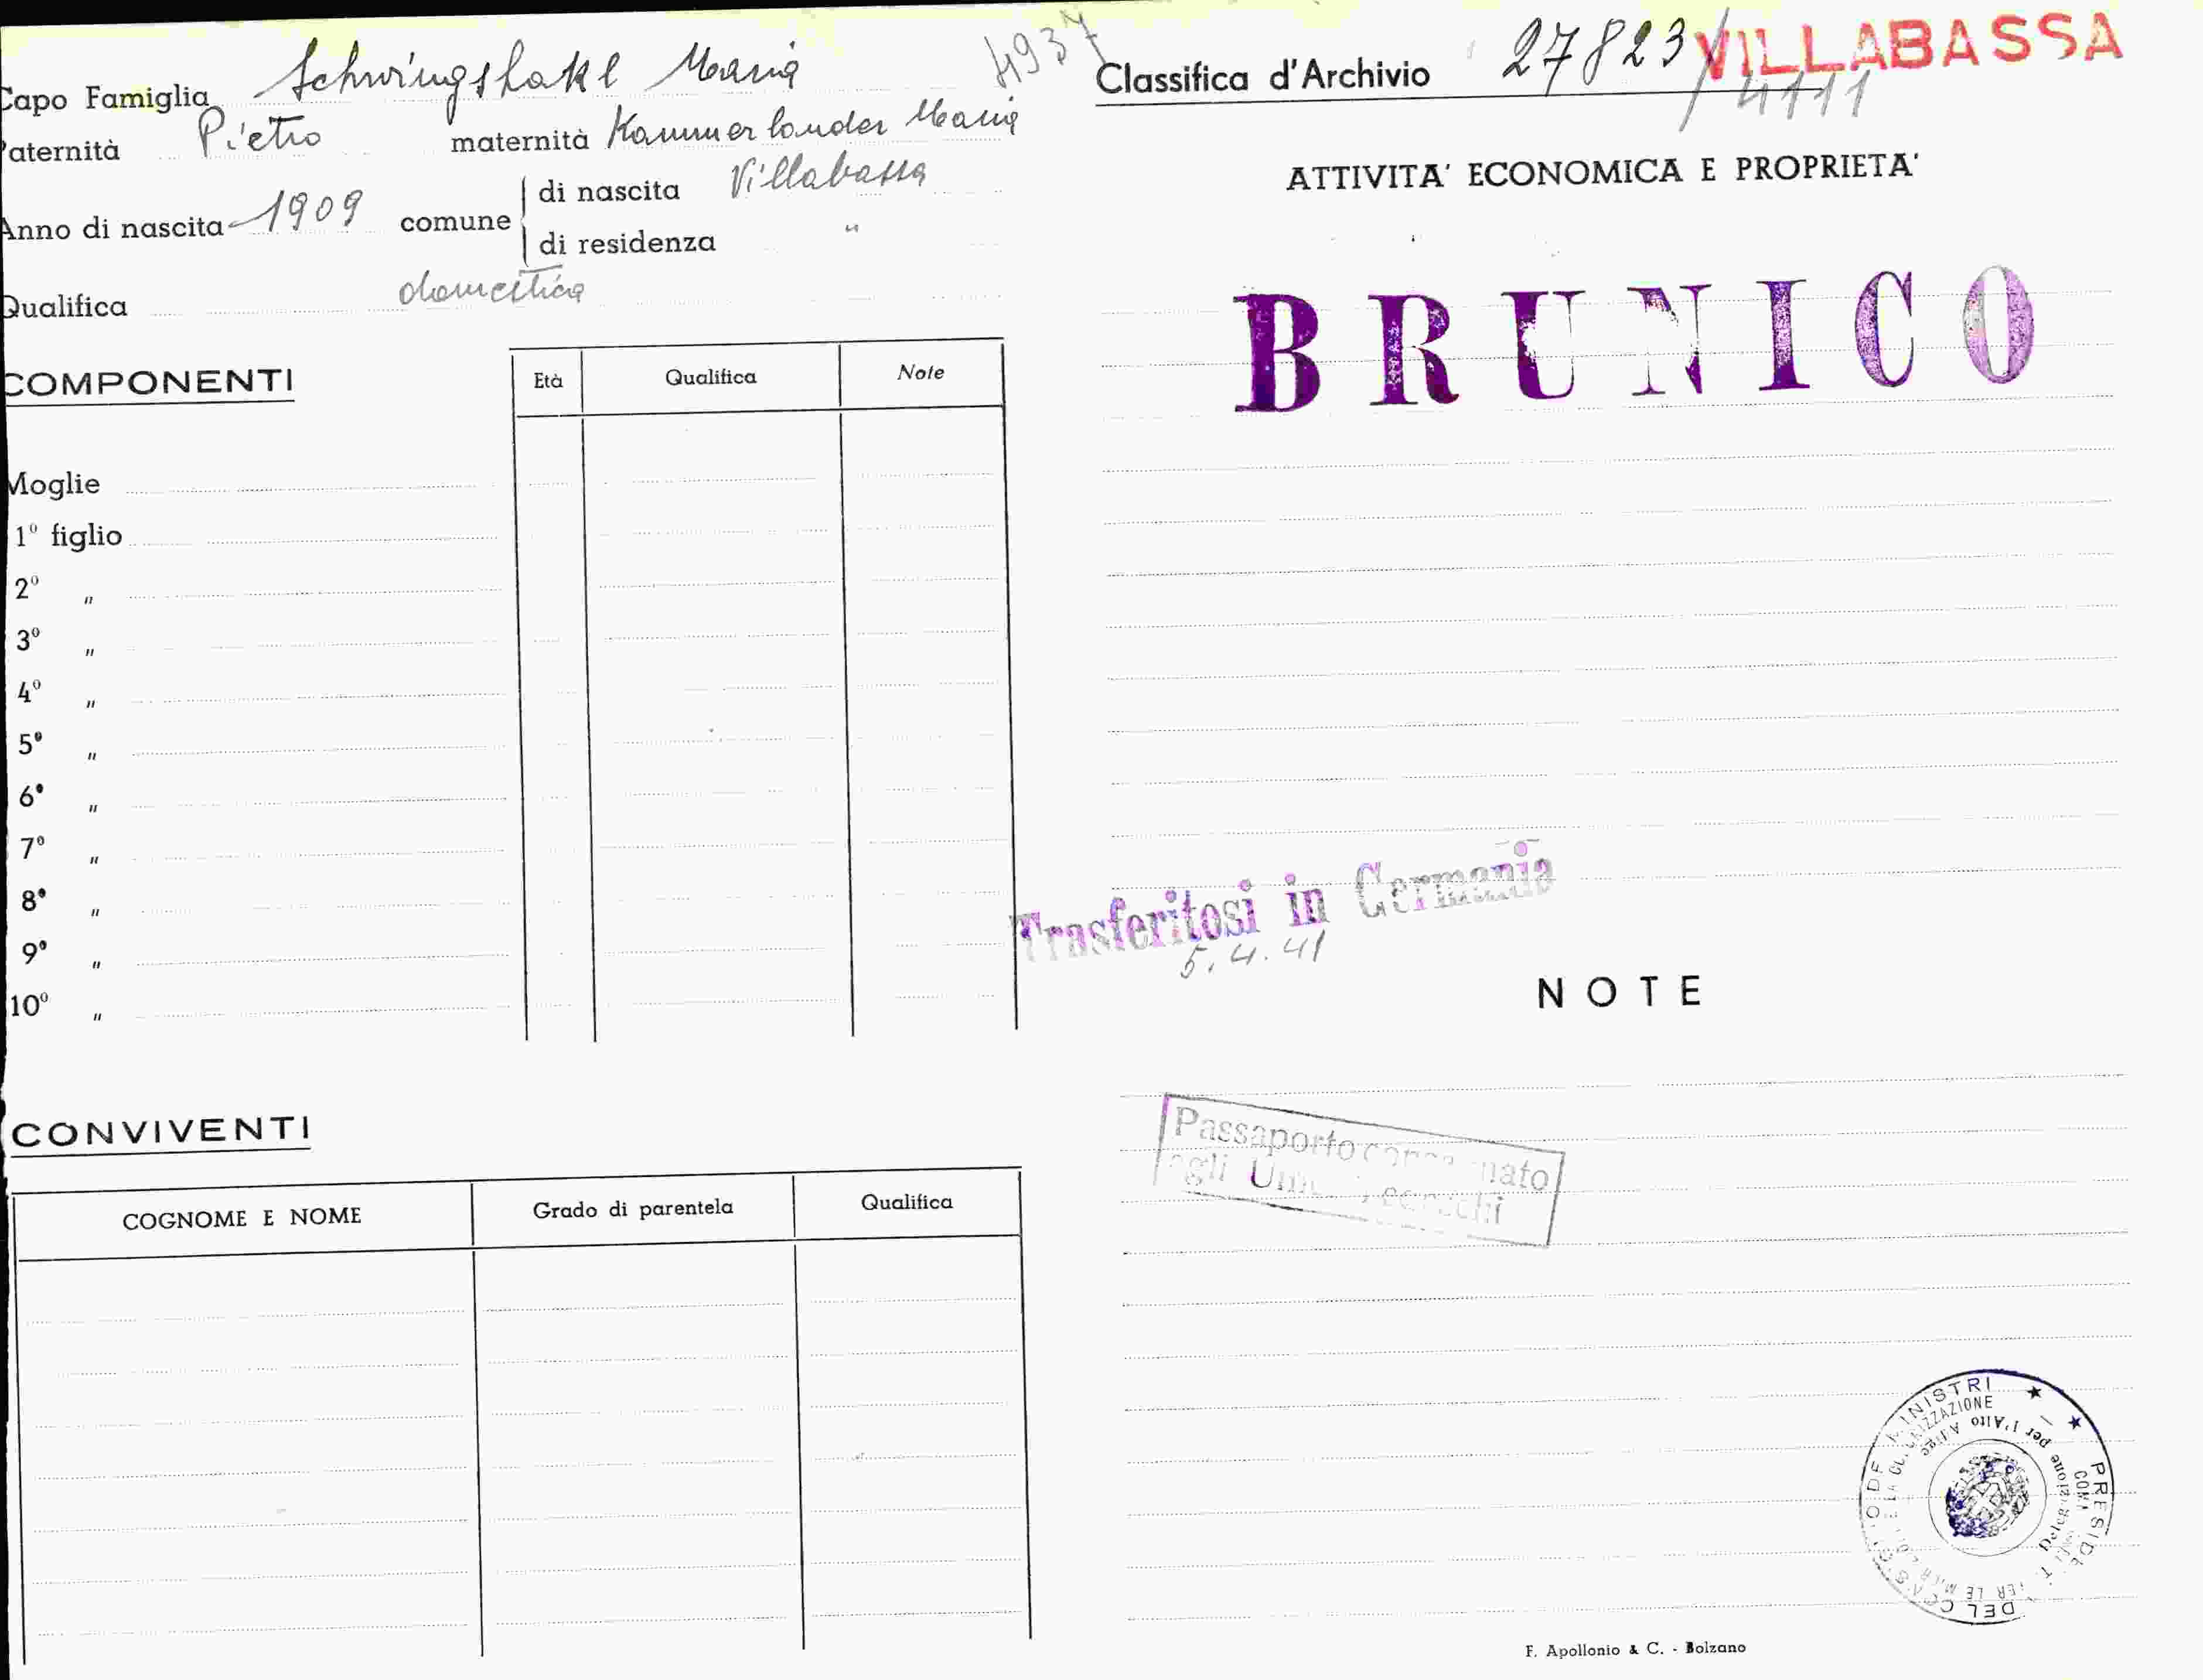 Capo Famiglia Schwingshakl Maria
4937
Paternità Pietro maternità Kammerlander Maria
Anno di nascita 1909 comune di nascita Villabassa
di residenza "
Qualifica domestica
COMPONENTI
Età Qualifica Note
Moglie
1º figlio
2º "
3º "
4º "
5º "
6º "
7º "
8º "
9º "
10º "
CONVIVENTI
COGNOME E NOME Grado di parentela Qualifica
Classifica d'Archivio 27823/4111
VILLABASSA
ATTIVITA' ECONOMICA E PROPRIETA'
BRUNICO
Trasferitosi in Germania
5.4.41
NOTE
Passaporto
agli
PRESIDE DEL CONSIGLIO DEI MINISTRI
PER LE
Delegazione per l'Alto Adige
F. Apollonio & C. - Bolzano